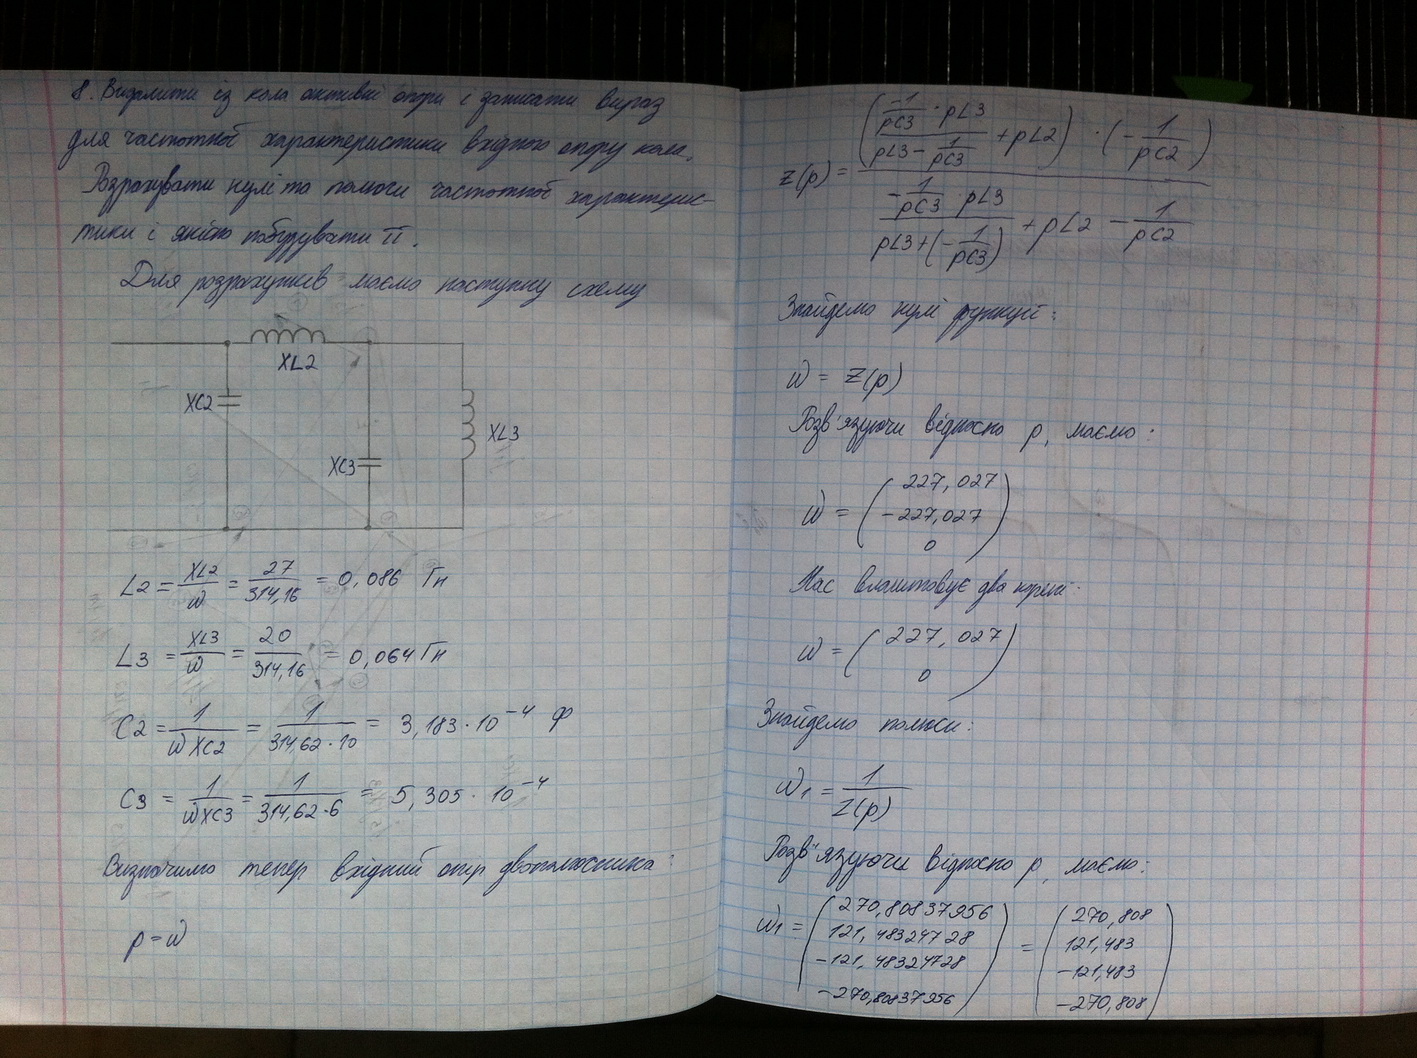 8. Видалити із кола активні опори і записати вираз
для частотної характеристики вхідного опору кола.
Розрахувати нулі та полюси частотної характерис-
тики і якісно побудувати її.
Для розрахунків маємо наступну схему
XL2
XC2
XL3
XC3
L2 = XL2/ω = 27/314,16 = 0,086 Гн
L3 = XL3/ω = 20/314,16 = 0,064 Гн
C2 = 1/(ω XC2) = 1/(314,62·10) = 3,183·10^-4 Ф
C3 = 1/(ωXC3) = 1/(314,62·6) = 5,305·10^-4
Визначимо тепер вхідний опір двополюсника:
p = ω
z(p) = (((-1/pC3 · pL3)/(pL3 - 1/pC3) + pL2) · (-1/pC2)) / ((-1/pC3 · pL3)/(pL3 + (-1/pC3)) + pL2 - 1/pC2)
Знайдемо нулі функції:
ω = Z(p)
Розв'язуючи відносно p, маємо:
ω = (227,027
-227,027
0)
Нас влаштовує два корені:
ω = (227,027
0)
Знайдемо полюси:
ω1 = 1/Z(p)
Розв'язуючи відносно p, маємо:
ω1 = (270,80837956
121,48324728
-121,48324728
-270,80837956) = (270,808
121,483
-121,483
-270,808)